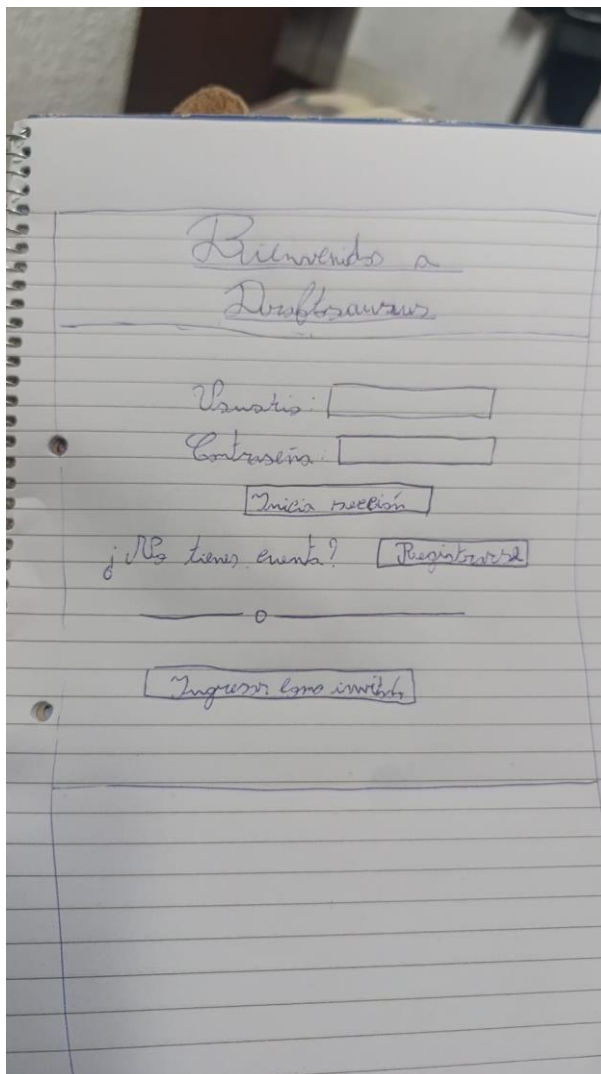 Bienvenidos a
Draftosaurus
Usuario:
Contraseña:
Inicia sección
¿No tienes cuenta? Registrarse
o
Ingresar como invitado